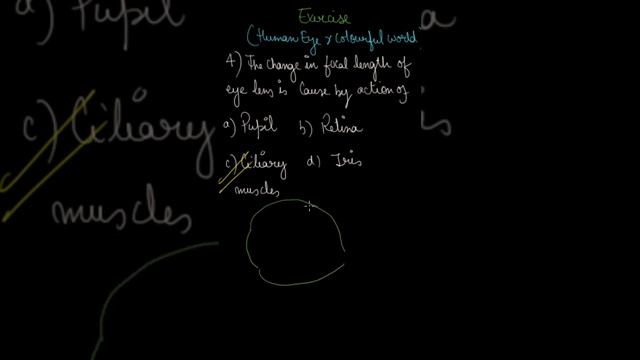 Exercise
(Human Eye & Colourful world
4) The change in focal length of
eye lens is cause by action of
a) Pupil b) Retina
c) Ciliary d) Iris
muscles
a) Pupil
c) Ciliary
muscles
a
is